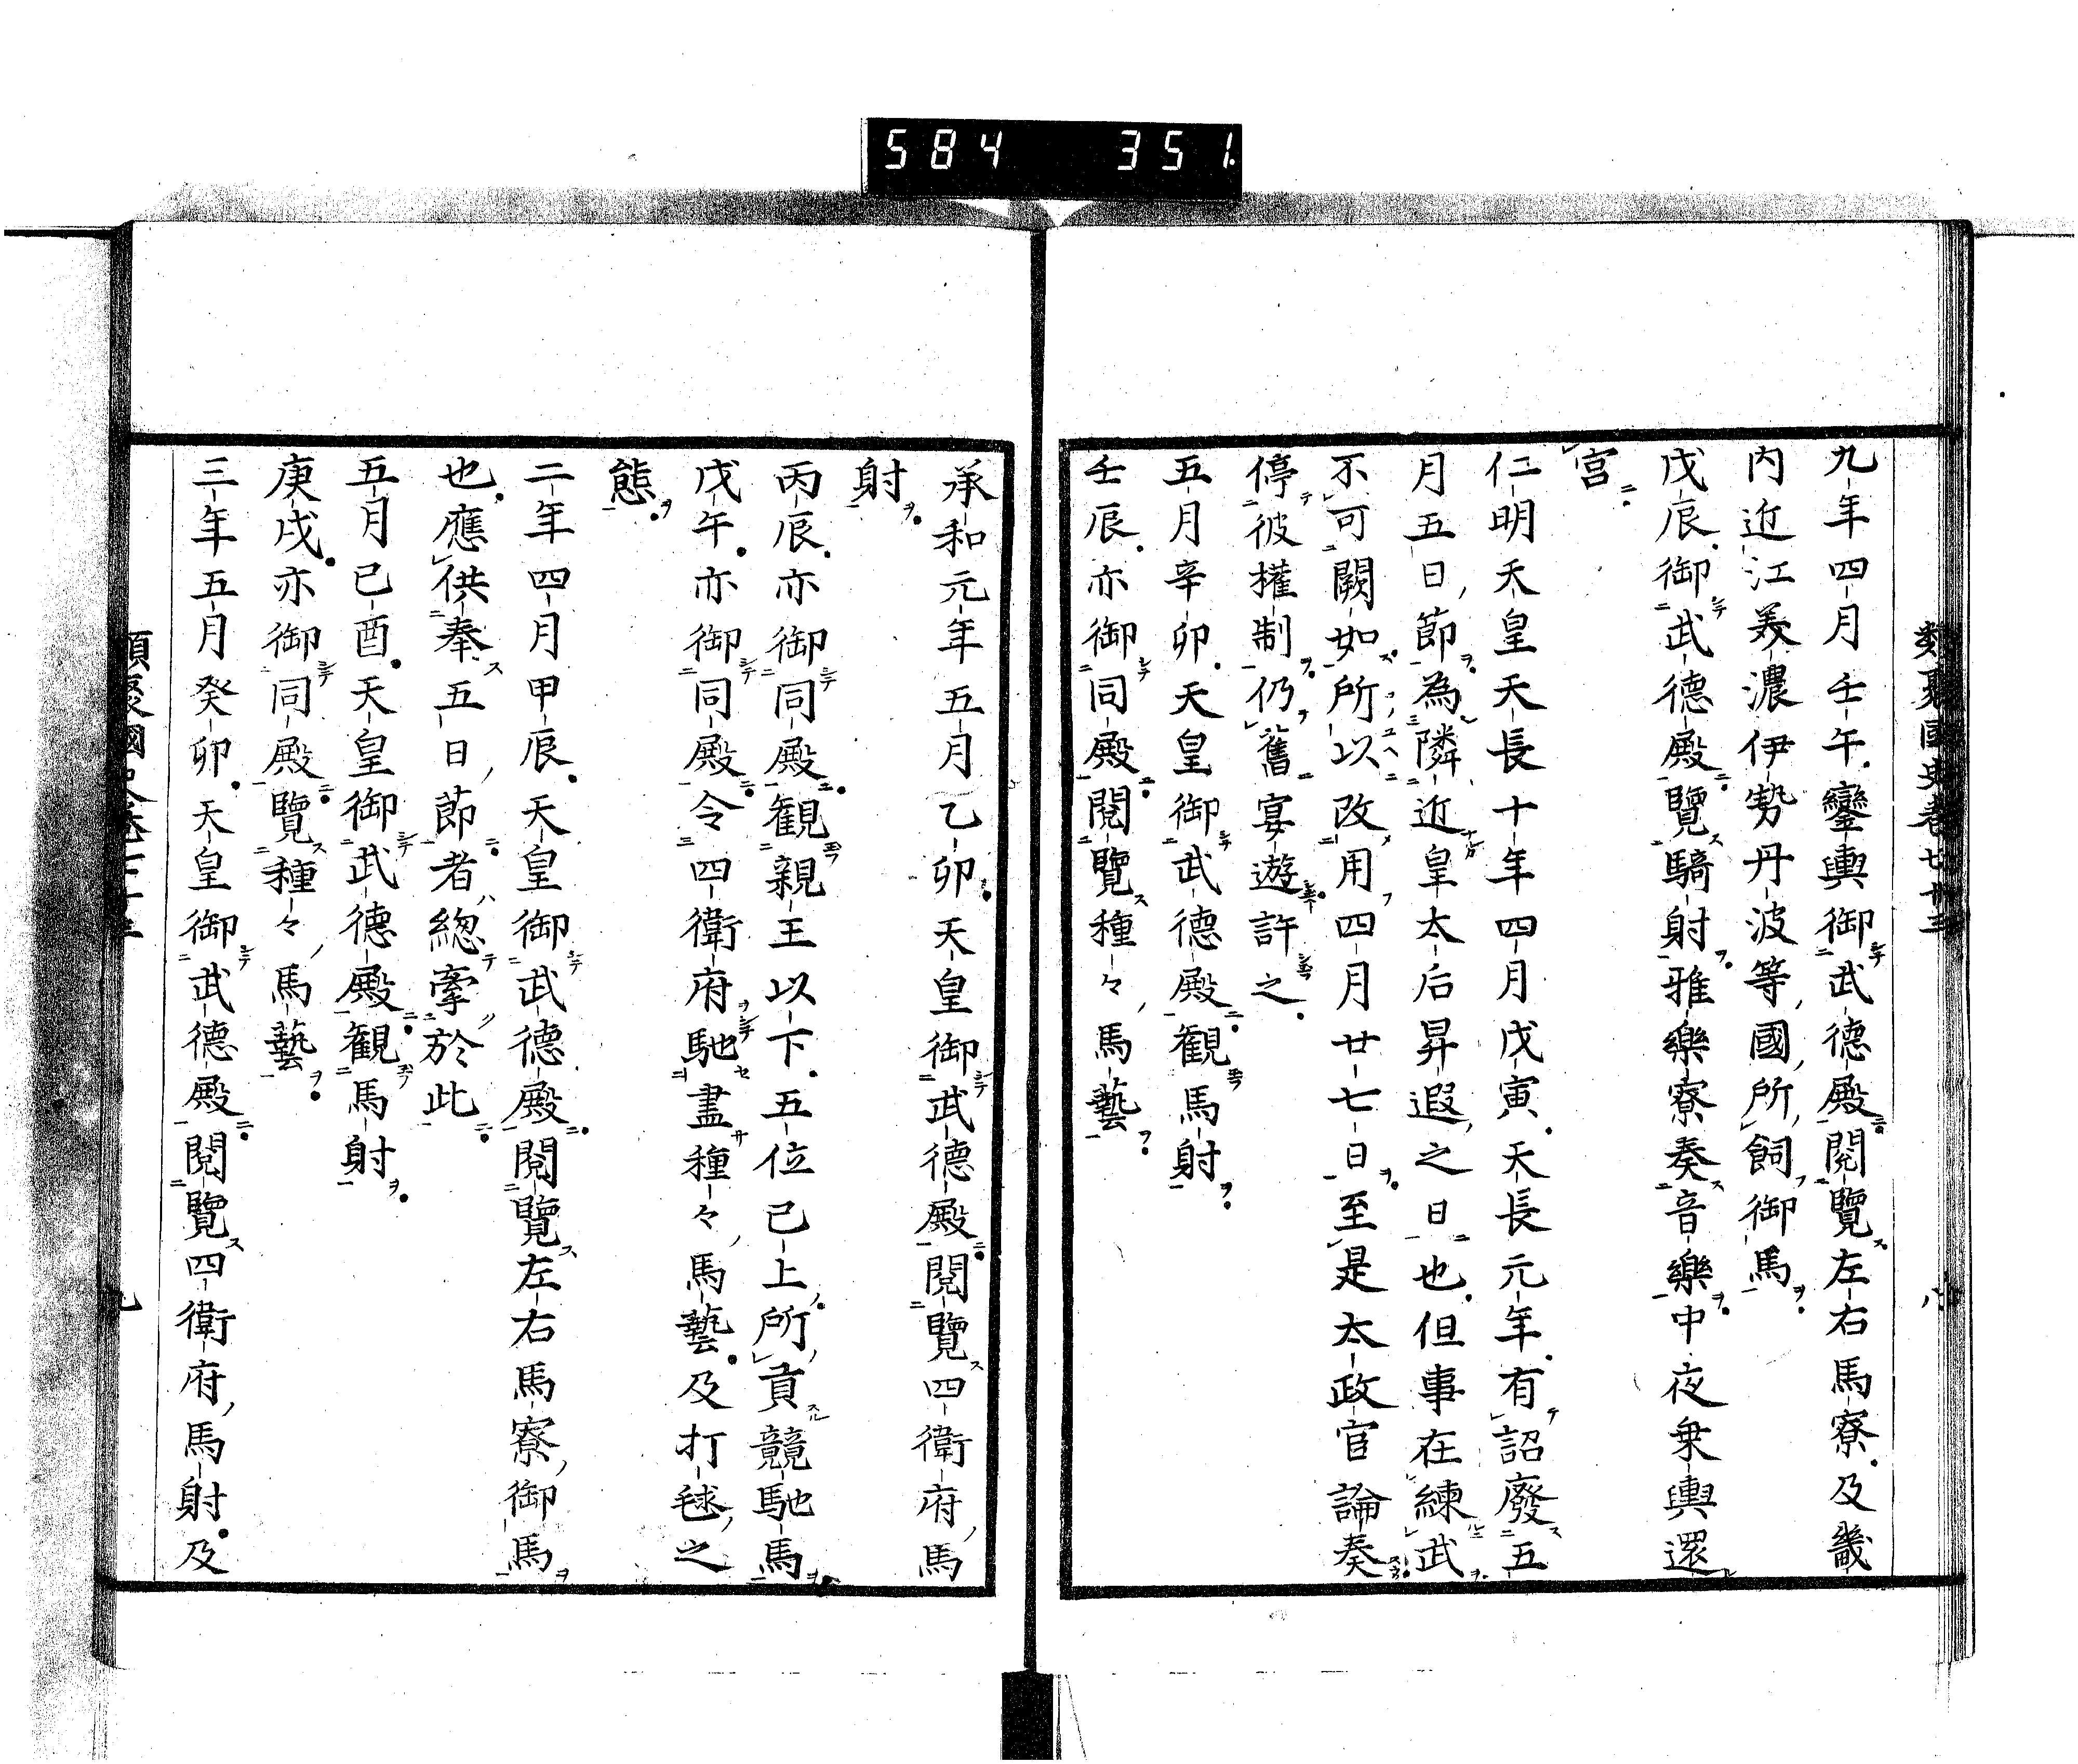 584 351
九年四月壬午鑾輿御武德殿閱覽左右馬寮及畿
内近江美濃伊勢丹波等國所飼御馬
戊辰御武德殿覽騎射雅樂寮奏音樂中夜乗輿還
宮
仁明天皇天長十年四月戊寅天長元年有詔廢五
月五日節為隣近皇太后昇遐之日也但事在練武
不可闕如所以改用四月廿七日至是太政官論奏
停彼權制仍舊宴遊許之
五月辛卯天皇御武德殿觀馬射
壬辰亦御同殿閱覽種々馬藝
承和元年五月乙卯天皇御武德殿閱覽四衛府馬
射
丙辰亦御同殿觀親王以下五位已上所貢競馳馬
戊午亦御同殿令四衛府馳盡種々馬藝及打毬之
態
二年四月甲辰天皇御武德殿閱覽左右馬寮御馬
也應供奉五日節者緫牽於此
五月己酉天皇御武德殿觀馬射
庚戌亦御同殿覽種々馬藝
三年五月癸卯天皇御武德殿閱覽四衛府馬射及